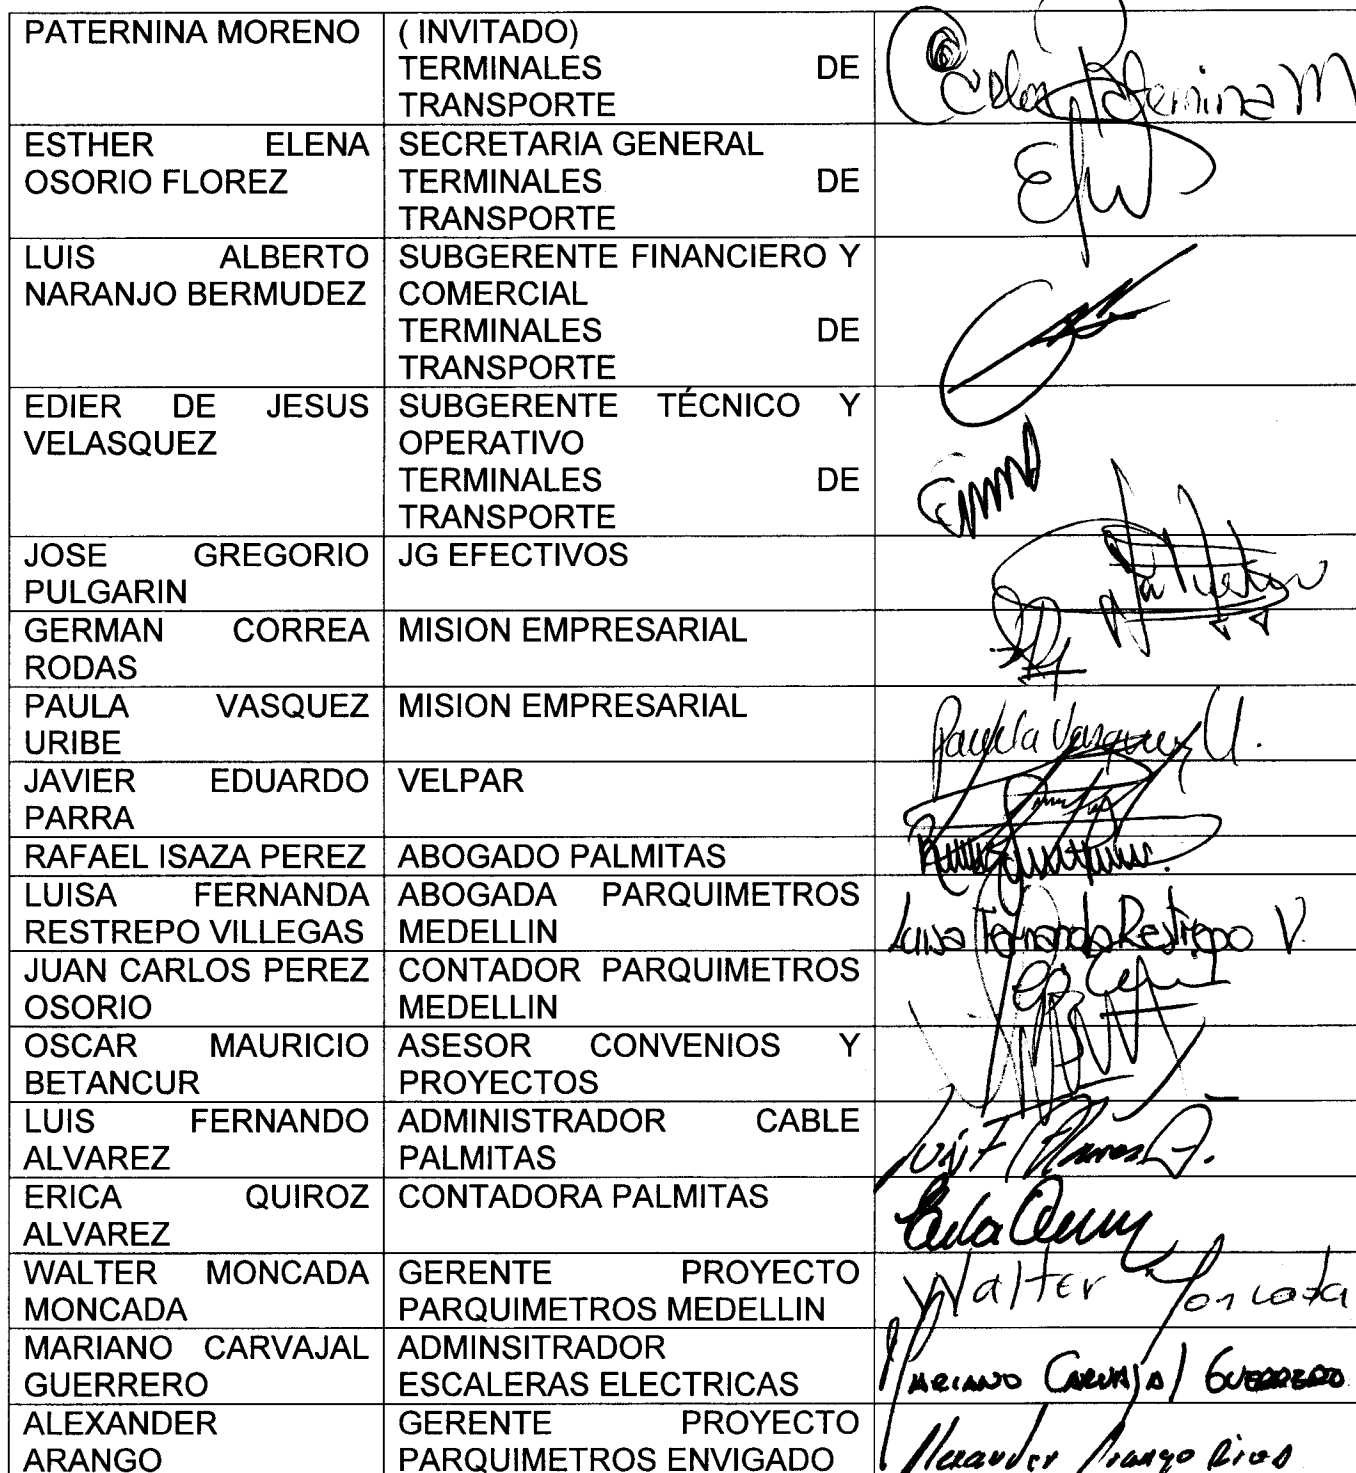 PATERNINA MORENO
( INVITADO)
TERMINALES DE
TRANSPORTE
Paternina M
ESTHER ELENA
OSORIO FLOREZ
SECRETARIA GENERAL
TERMINALES DE
TRANSPORTE
LUIS ALBERTO
NARANJO BERMUDEZ
SUBGERENTE FINANCIERO Y
COMERCIAL
TERMINALES DE
TRANSPORTE
EDIER DE JESUS
VELASQUEZ
SUBGERENTE TÉCNICO Y
OPERATIVO
TERMINALES DE
TRANSPORTE
JOSE GREGORIO
PULGARIN
JG EFECTIVOS
GERMAN CORREA
RODAS
MISION EMPRESARIAL
PAULA VASQUEZ
URIBE
MISION EMPRESARIAL
Paula Vasquez U.
JAVIER EDUARDO
PARRA
VELPAR
RAFAEL ISAZA PEREZ
ABOGADO PALMITAS
LUISA FERNANDA
RESTREPO VILLEGAS
ABOGADA PARQUIMETROS
MEDELLIN
Luisa Fernanda Restrepo V.
JUAN CARLOS PEREZ
OSORIO
CONTADOR PARQUIMETROS
MEDELLIN
OSCAR MAURICIO
BETANCUR
ASESOR CONVENIOS Y
PROYECTOS
LUIS FERNANDO
ALVAREZ
ADMINISTRADOR CABLE
PALMITAS
Luis F
ERICA QUIROZ
ALVAREZ
CONTADORA PALMITAS
WALTER MONCADA
MONCADA
GERENTE PROYECTO
PARQUIMETROS MEDELLIN
Walter Moncada
MARIANO CARVAJAL
GUERRERO
ADMINSITRADOR
ESCALERAS ELECTRICAS
MARIANO CARVAJAL GUERRERO
ALEXANDER
ARANGO
GERENTE PROYECTO
PARQUIMETROS ENVIGADO
Alexander Arango Rios